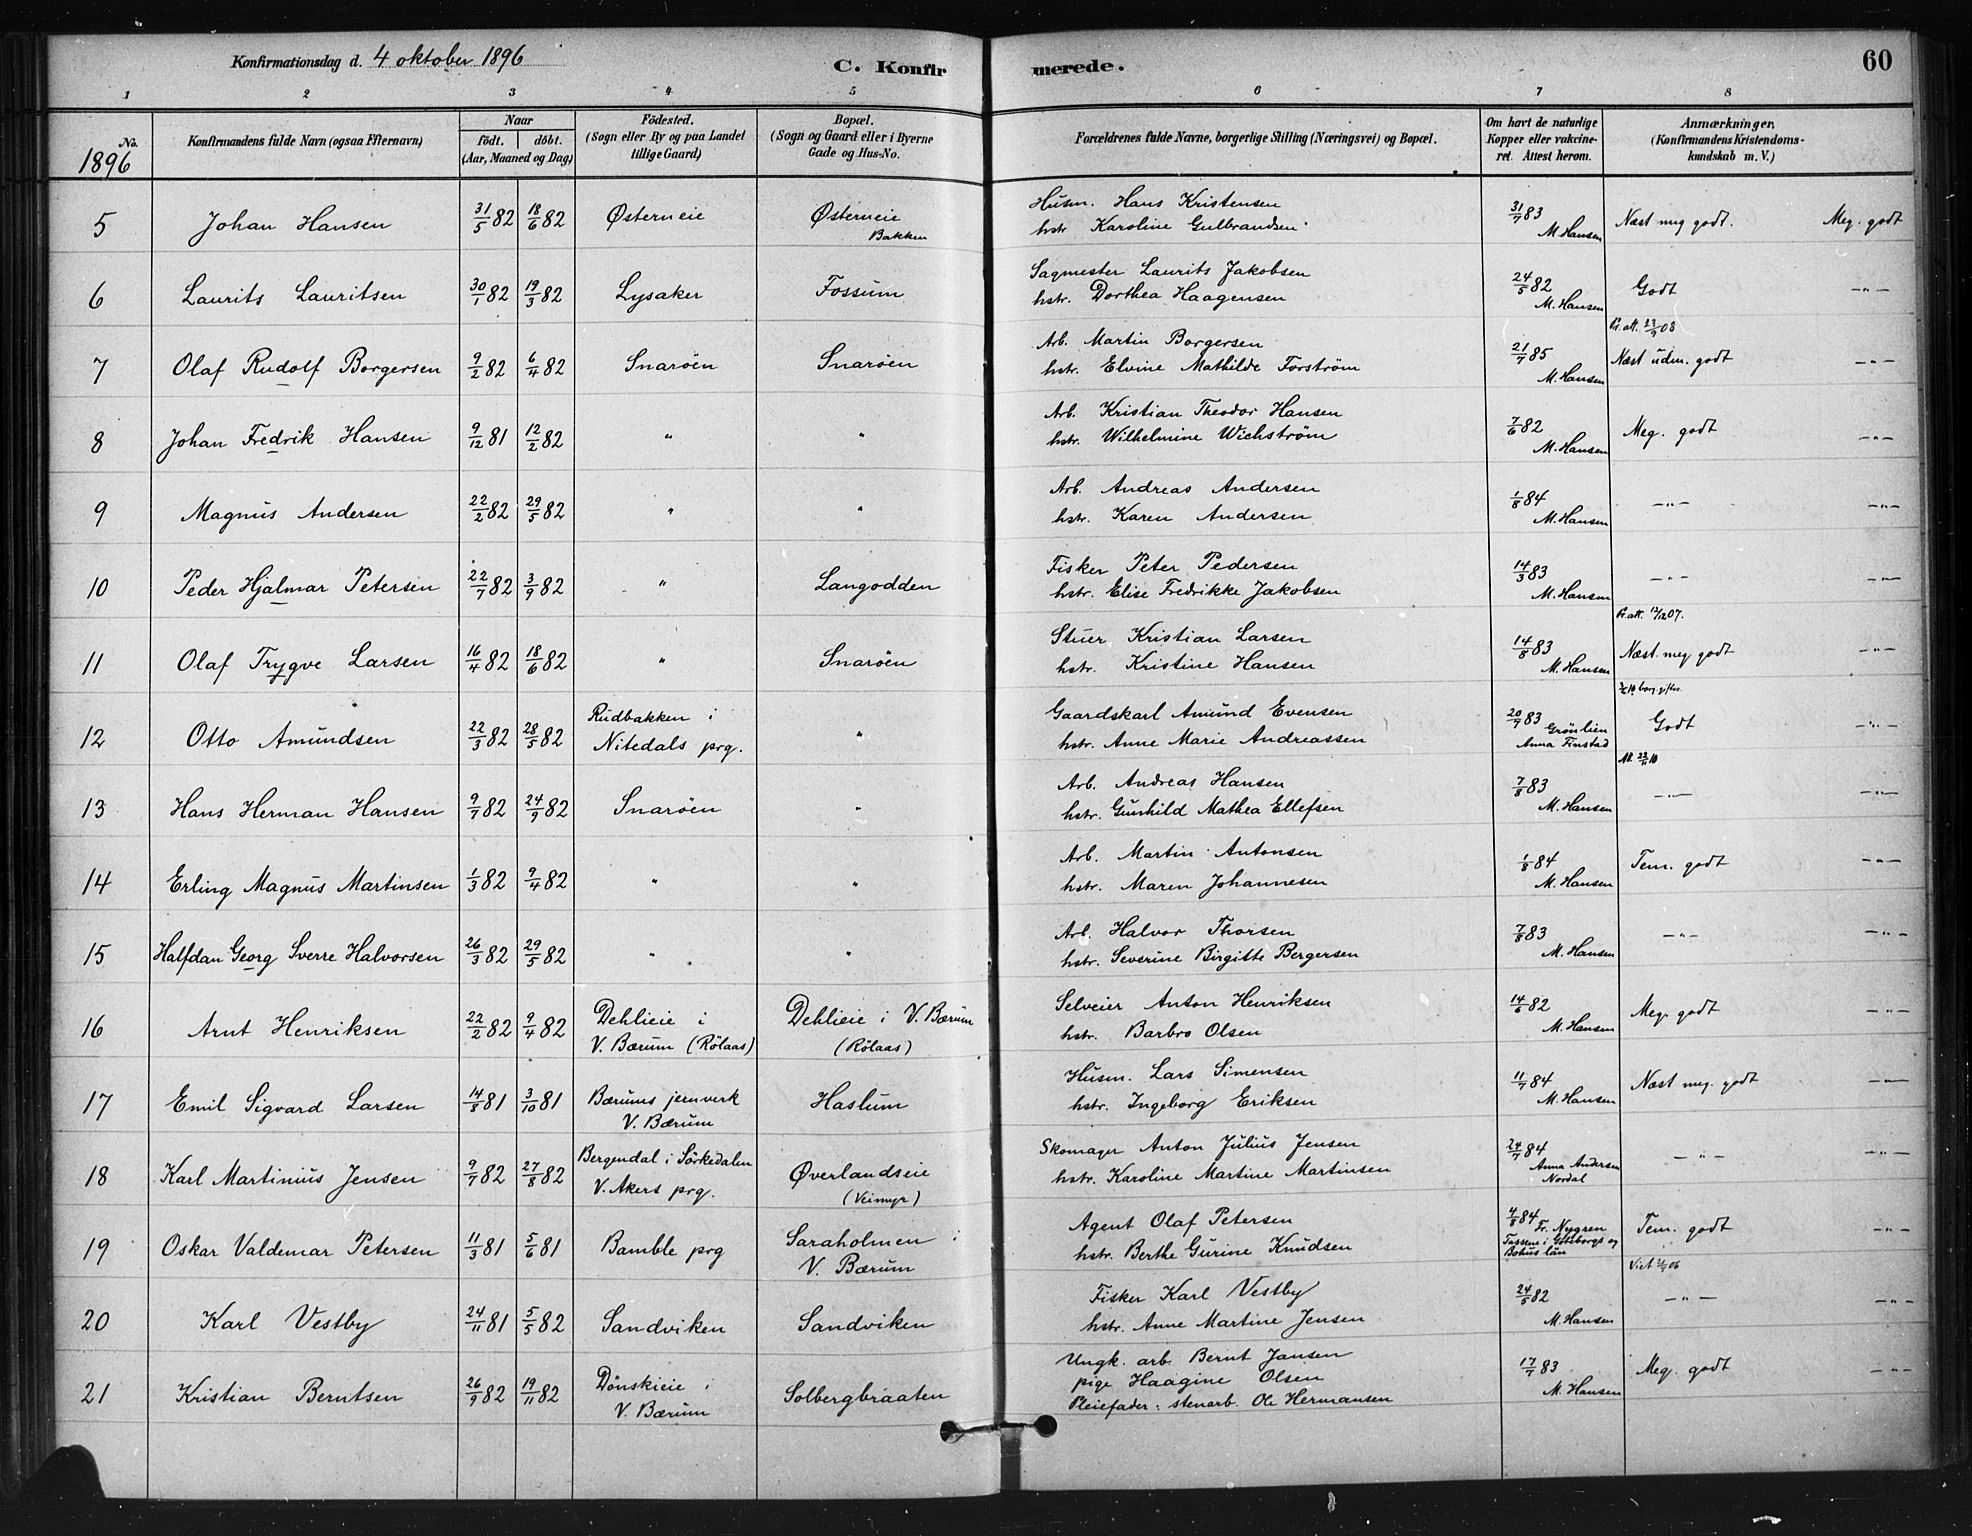 Konfirmationsdag d. 4 oktober 1896
C. Konfirmerede.
60
1 2 3 4 5 6 7 8
No. 1896
Konfirmandens fulde Navn (ogsaa Efternavn)
Naar født. døbt. (Aar, Maaned og Dag)
Födested. (Sogn eller By og paa Landet tillige Gaard)
Bopæl. (Sogn og Gaard eller i Byerne Gade og Hus-No.
Forældrenes fulde Navne, borgerlige Stilling (Næringsvei) og Bopæl.
Om havt de naturlige Kopper eller vakcineret. Attest herom.
Anmærkninger, (Konfirmandens Kristendomskundskab m. V.)
5 Johan Hansen 31/5 82 18/6 82 Østerneie Østerneie Bakken
Husm. Hans Kristensen
hstr. Karoline Gulbrandsen
31/7 83 M. Hansen Næst meg godt. Meg. godt
6 Laurits Lauritsen 30/1 82 19/3 82 Lysaker Fossum
Sagmester Laurits Jakobsen
hstr. Dorthea Haagensen
24/5 82 M. Hansen Godt —„—
7 Olaf Rudolf Borgersen 9/2 82 6/4 82 Snarøen Snarøen
Arb. Martin Borgersen
hstr. Elvine Mathilde Forstrøm
21/7 85 M. Hansen Pr. att. 23/9 08 Næst udm. godt —„—
8 Johan Fredrik Hansen 9/12 81 12/2 82 „ „
Arb. Kristian Theodor Hansen
hstr. Wilhelmine Wichstrøm
7/6 82 M. Hansen Meg. godt —„—
9 Magnus Andersen 22/2 82 29/5 82 „ „
Arb. Andreas Andersen
hstr. Karen Andersen
1/8 84 M. Hansen —„— —„—
10 Peder Hjalmar Petersen 22/7 82 3/9 82 „ Langodden
Fisker Peter Pedersen
hstr. Elise Fredrikke Jakobsen
14/3 83 M. Hansen —„— —„—
11 Olaf Trygve Larsen 16/4 82 18/6 82 „ Snarøen
Stuer Kristian Larsen
hstr. Kristine Hansen
14/8 83 M. Hansen Pr. att. 12/12 07. Næst. meg godt —„—
12 Otto Amundsen 22/3 82 28/5 82 Rudbakken i Nitedals prg. „
Gaardskarl Amund Evensen
hstr. Anne Marie Andreassen
20/7 83 Grönlien Anna Finstad Godt —„—
13 Hans Herman Hansen 9/7 82 24/9 82 Snarøen „
Arb. Andreas Hansen
hstr. Gunhild Mathea Ellefsen
7/8 83 M. Hansen —„— —„—
14 Erling Magnus Martinsen 1/3 82 9/4 82 „ „
Arb. Martin Antonsen
hstr. Maren Johannesen
1/8 84 M. Hansen Tem. godt —„—
15 Halfdan Georg Sverre Halvorsen 26/3 82 29/5 82 „ „
Arb. Halvor Thorsen
hstr. Severine Birgitte Bergersen
7/8 83 M. Hansen —„— —„—
16 Arnt Henriksen 22/2 82 9/4 82 Dehlieie i V. Bærum (Rølaas) Dehlieie i V. Bærum (Rølaas)
Selveier Anton Henriksen
hstr. Barbro Olsen
14/6 82 M. Hansen Meg. godt —„—
17 Emil Sigvard Larsen 14/8 81 3/10 81 Bærums jernverk V. Bærum Haslum
Husm. Lars Simensen
hstr. Ingeborg Eriksen
11/7 84 M. Hansen Næst meg. godt —„—
18 Karl Martinius Jensen 9/7 82 27/8 82 Bergendal i Sörkedalen V. Akers prg. Øverlandseie (Veimyr)
Skomager Anton Julius Jensen
hstr. Karoline Martine Martinsen
24/7 84 Anna Andersen Nordal —„— —„—
19 Oskar Valdemar Petersen 11/3 81 5/6 81 Bamble prg Saraholmen i V. Bærum
Agent Olaf Petersen
hstr. Berthe Gurine Knudsen
4/8 84 Fr. Nygren Tassene i Göteborgs og Bohus län Tem. godt —„—
20 Karl Vestby 24/11 81 5/5 82 Sandviken Sandviken
Fisker Karl Vestby
hstr. Anne Martine Jensen
24/5 82 M. Hansen —„— —„—
21 Kristian Berntsen 26/9 82 19/11 82 Dønskieie i V. Bærum Solbergbraaten
Ungk. arb. Bernt Jansen
pige Haagine Olsen
Pleiefader: stenarb. Ole Hermansen
17/7 83 M. Hansen Meg. godt —„—